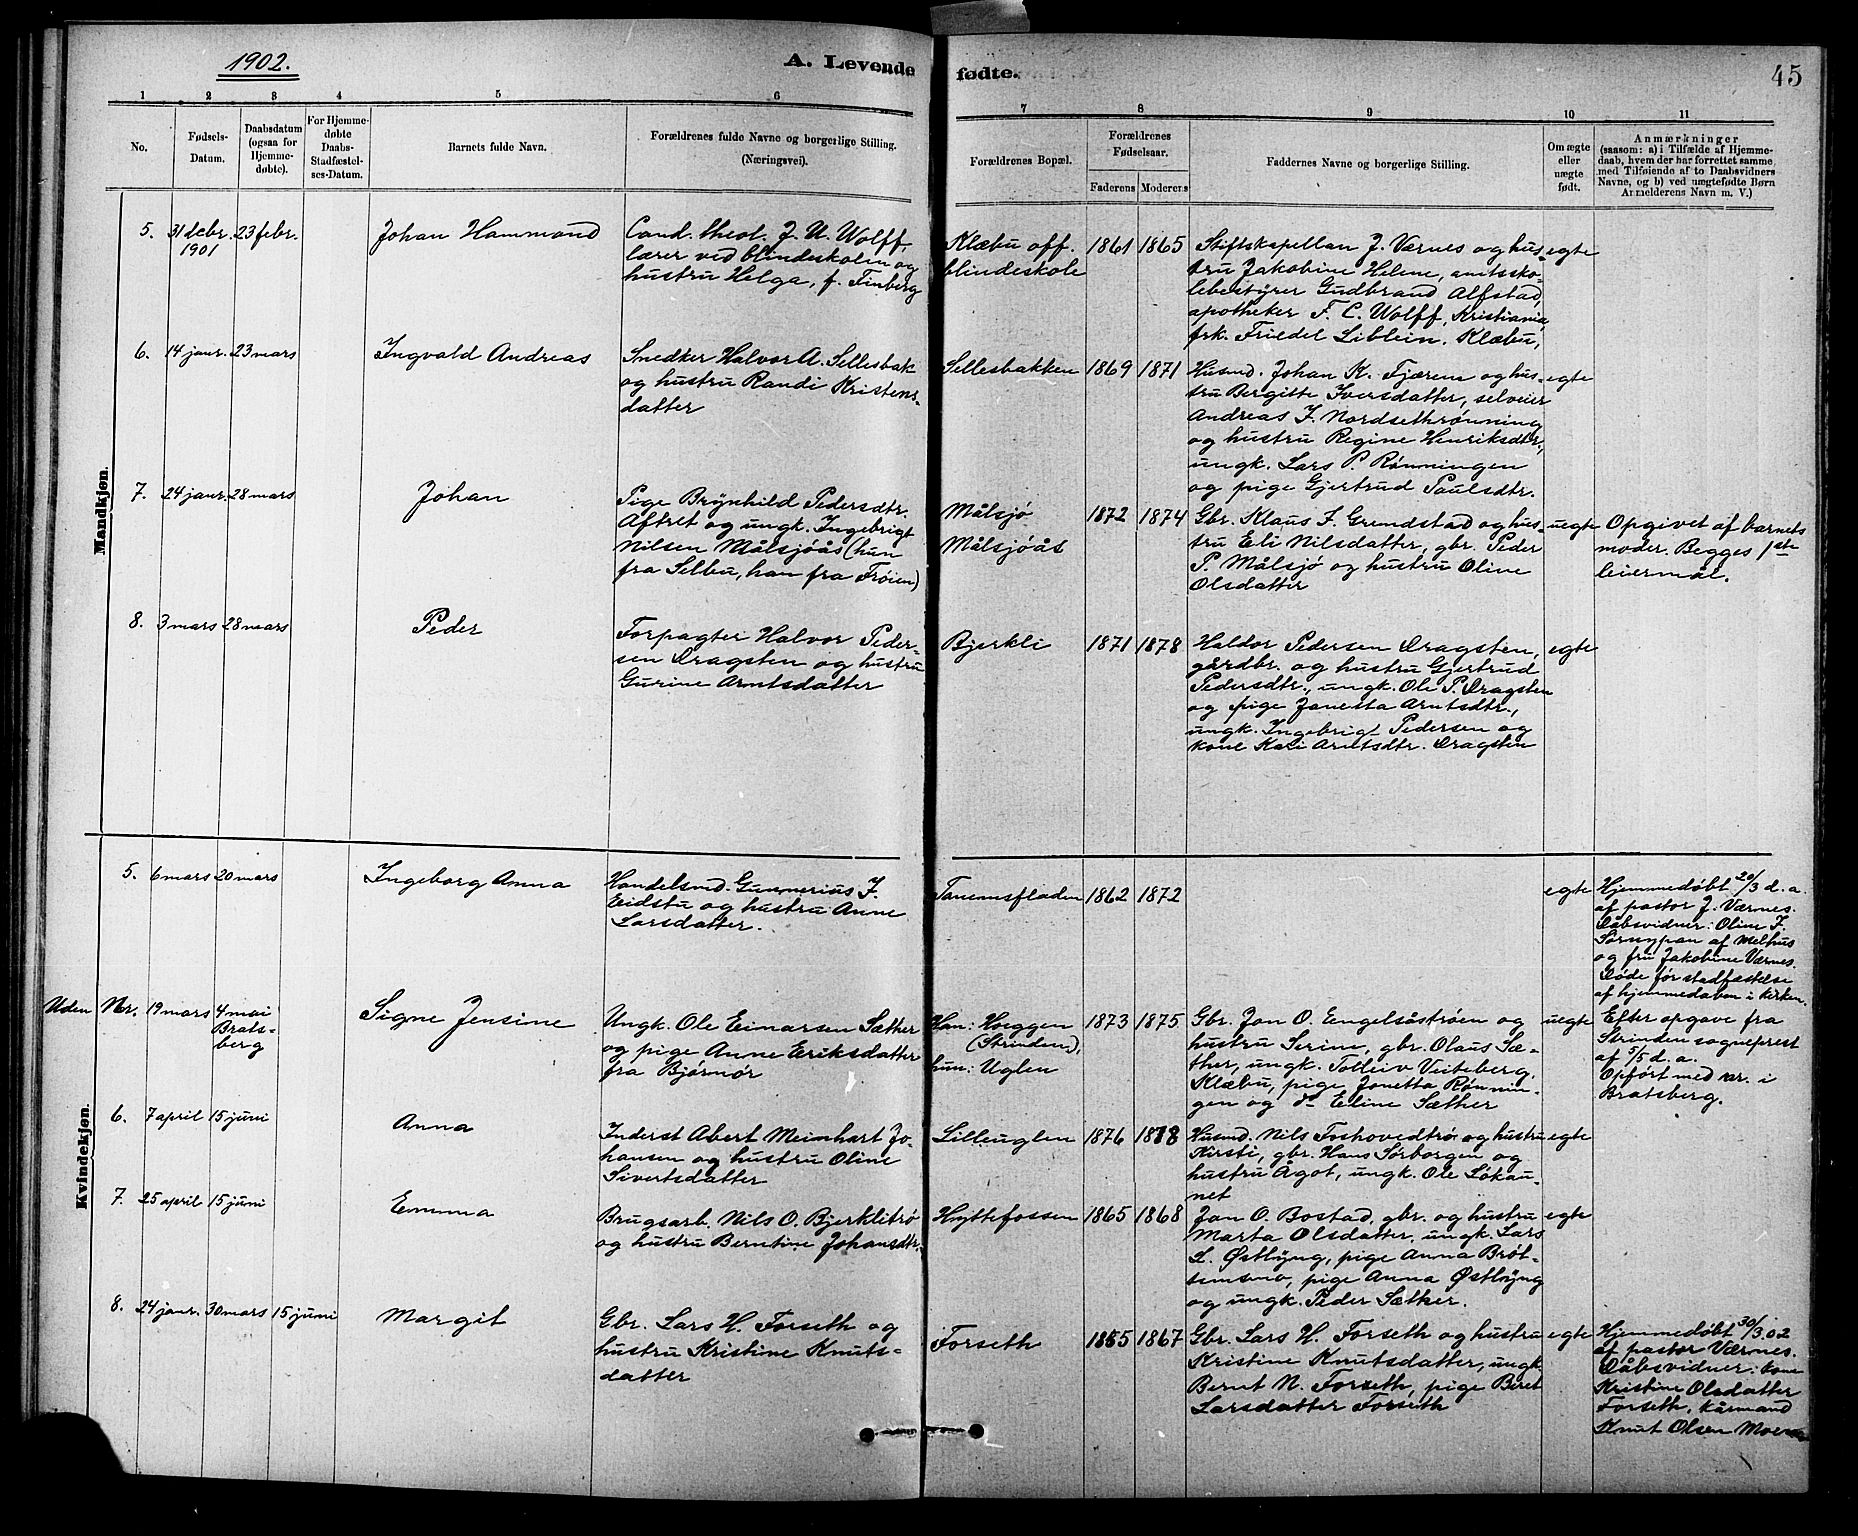 1902.
A. Levende
fødte.
45
1 2 3 4 5 6 7 8 9 10 11
No.
Fødsels-
Datum.
Daabsdatum
(ogsaa for
Hjemme-
døbte).
For Hjemme-
døbte
Daabs-
Stadfæstel-
ses-Datum.
Barnets fulde Navn.
Forældrenes fulde Navne og borgerlige Stilling.
(Næringsvei).
Forældrenes Bopæl.
Forældrenes
Fødselsaar.
Faderens Moderens
Faddernes Navne og borgerlige Stilling.
Om ægte
eller
uægte
født.
Anmærkninger
(saasom: a) i Tilfælde af Hjemme-
daab, hvem der har forrettet samme
med Tilføiende af to Daabsvidners
Navne, og b) ved uægtefødte Børn
Anmelderens Navn m. V.)
Mandkjøn.
5.
31 debr.
1901
23 febr.
Johan Hammond
Cand. theol. J. U. Wolff,
lærer ved blindeskolen og
hustru Helga, f. Finberg
Klæbu off.
blindeskole
1861
1865
Stiftskapellan J. Værnes og hus-
tru Jakobine Helene, amtssko-
lebestyrer Gudbrand Alfstad,
apotheker F. C. Wolff, Kristiania,
frk. Friedel Liblein, Klæbu,
egte
6.
14 janr.
23 mars
Ingvald Andreas
Snedker Halvor A. Sellesbak
og hustru Randi Kristens-
datter
Sellesbakken
1869
1871
Husmd. Johan K. Fjærem og hus-
tru Bergitte Iversdatter, selveier
Andreas J. Nordsethrønning
og hustru Regine Henriksdtr,
ungk. Lars P. Rønningen
og pige Gjertrud Paulsdtr.
egte
7.
24 janr.
28 mars
Johan
Pige Brynhild Pedersdtr.
Aftret og ungk. Ingebrigt
Nilsen Målsjøås (hun
fra Selbu, han fra Frøien)
Målsjø
Målsjøås
1872
1874
Gbr. Klaus F. Grendstad og hus-
tru Eli Nilsdatter, gbr. Peder
P. Målsjø og hustru Oline
Olsdatter
uegte
Opgivet af barnets
moder. Begges 1ste
leiermål.
8.
3 mars
28 mars
Peder
Forpagter Halvor Peder-
sen Dragsten og hustru
Gurine Arntsdatter
Bjerkli
1871
1878
Haldor Pedersen Dragsten,
gårdbr. og hustru Gjertrud
Pedersdtr., ungk. Ole P. Dragsten
og pige Jonetta Arntsdtr.,
ungk. Ingebrigt Pedersen og
kone Kari Arntsdtr. Dragsten
egte
Kvindekjøn.
5.
6 mars
20 mars
Ingeborg Anna
Handelsmd. Gunnerius J.
Eidstu og hustru Anne
Larsdatter.
Tanemsfladen
1862
1872
egte
Hjemmedøbt 20/3 d. a.
af pastor J. Værnes.
Dåbsvidner: Oline F.
Sørnypan af Melhus
og fru Jakobine Værnes.
Døde før stadfæstelse
af hjemmedåben i kirken.
Uden Nr.
19 mars
4 mai
Brats-
berg
Signe Jensine
Ungk. Ole Einarsen Sæther
og pige Anne Eriksdatter
fra Bjørnør
Han: Hoeggen
(Strinden),
hun: Uglen
1873
1875
Gbr. Jon O. Engelsåstrøen og
hustru Serine, gbr. Olaus Sæ-
ther, ungk. Tolleiv Veiteberg,
Klæbu, pige Jonetta Rønnin-
gen og do Eline Sæther
uegte
Efter opgave fra
Strinden sogneprest
af 5/5 d. a.
Opført med nr. i
Bratsberg.
6.
7 april
15 juni
Anna
Inderst Abert Meinhart Jo-
hansen og hustru Oline
Sivertsdatter
Lilleuglen
1876
1878
Husmd. Nils Foshovedtrø og hustru
Kirsti, gbr. Hans Sørborgen og
hustru Ågot, ungk. Ole Løkau-
net
egte
7.
25 april
15 juni
Emma
Brugsarb. Nils O. Bjerklitrø
og hustru Berntine Johansdtr.
Hyttefossen
1865
1868
Jon O. Bostad, gbr. og hustru
Marta Olsdatter, ungk. Lars
L. Østlyng, pige Anna Brøt-
temsmo, pige Anna Østlyng
og ungk. Peder Sæther.
egte
8.
24 janr.
30 mars
15 juni
Margit
Gbr. Lars H. Forseth og
hustru Kristine Knuts-
datter
Forseth
1855
1867
Gbr. Lars H. Forseth og hustru
Kristine Knutsdatter, ungk.
Bernt N. Forseth, pige Beret
Larsdatter Forseth
egte
Hjemmedøbt 30/3.02
af pastor Værnes.
Dåbsvidner: kone
Kristine Olsdatter
Forseth, kårmand
Knut Olsen Moen